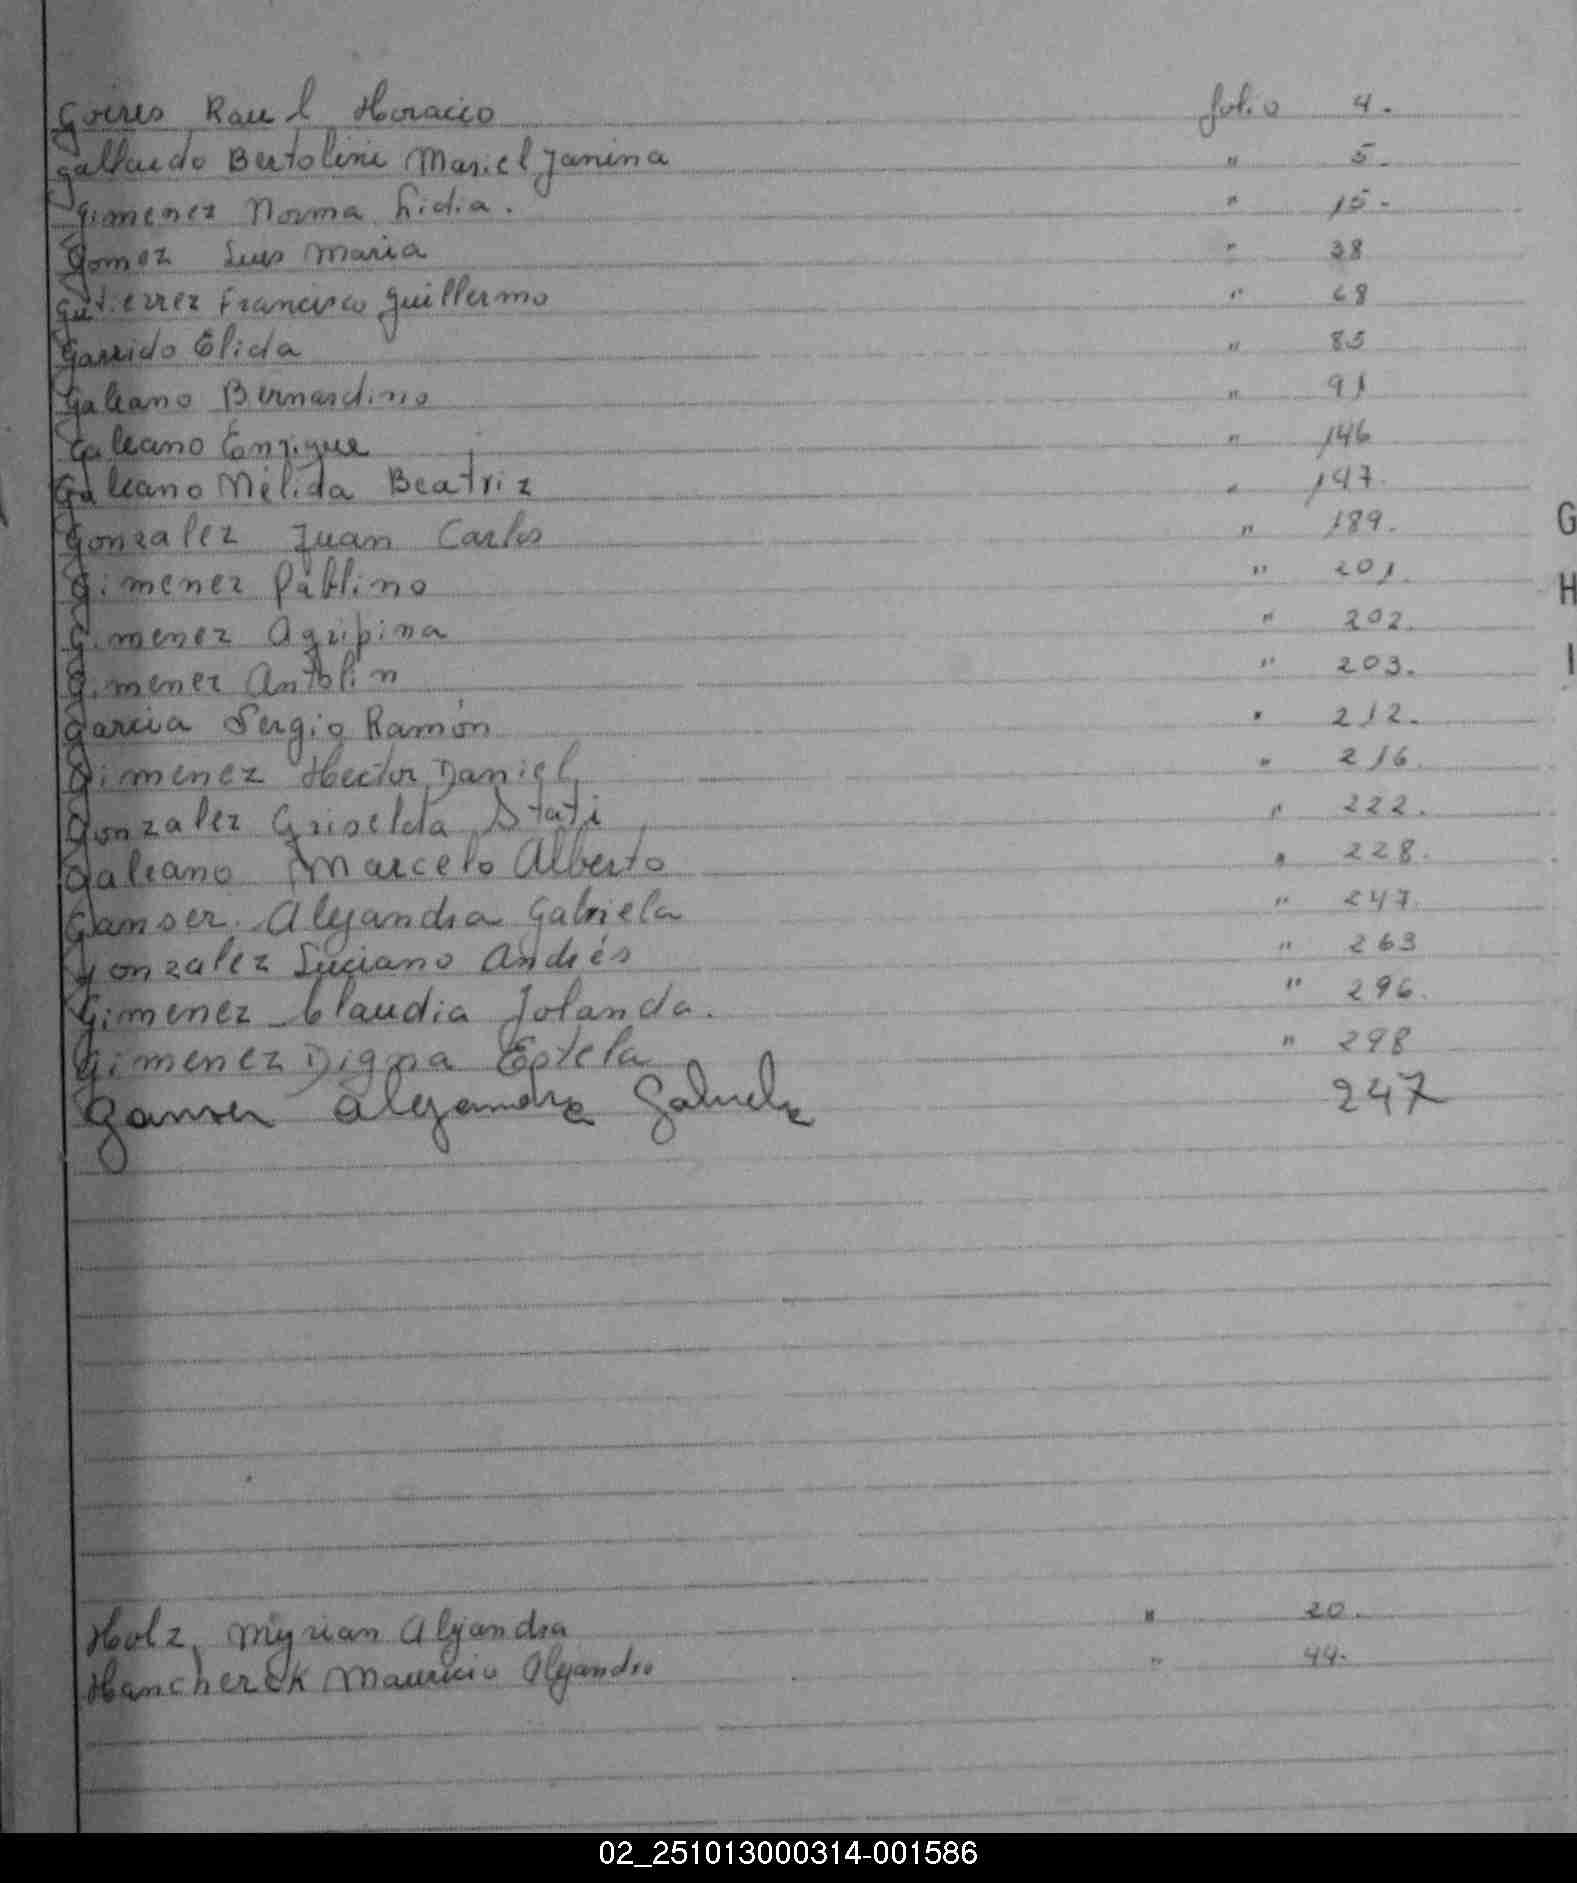 Goires Raul Horacio folio 4.
Gallardo Bertolini Mariel Janina " 5.
Gimenez Norma Lidia. " 15.
Gomez Luis Maria " 38
Gutierrez Francisco Guillermo " 68
Garrido Elida " 85
Galeano Bernardino " 91
Galeano Enrique " 146
Galeano Mélida Beatriz " 147.
Gonzalez Juan Carlos " 189.
G
Gimenez Pablino " 201.
H
Gimenez Agripina " 202.
Gimenez Antolin " 203.
I
Garcia Sergio Ramón " 212.
Gimenez Hector Daniel " 216.
Gonzalez Griselda Stati " 222.
Galeano Marcelo Alberto " 228.
Ganser Alejandra Gabriela " 247.
Gonzalez Luciano Andrés " 263
Gimenez Claudia Jolanda. " 296.
Gimenez Digna Estela " 298
Ganser Alejandra Gabriela 247
Holz, Myrian Alejandra " 20.
Hancherek Mauricio Alejandro " 44.
02_251013000314-001586